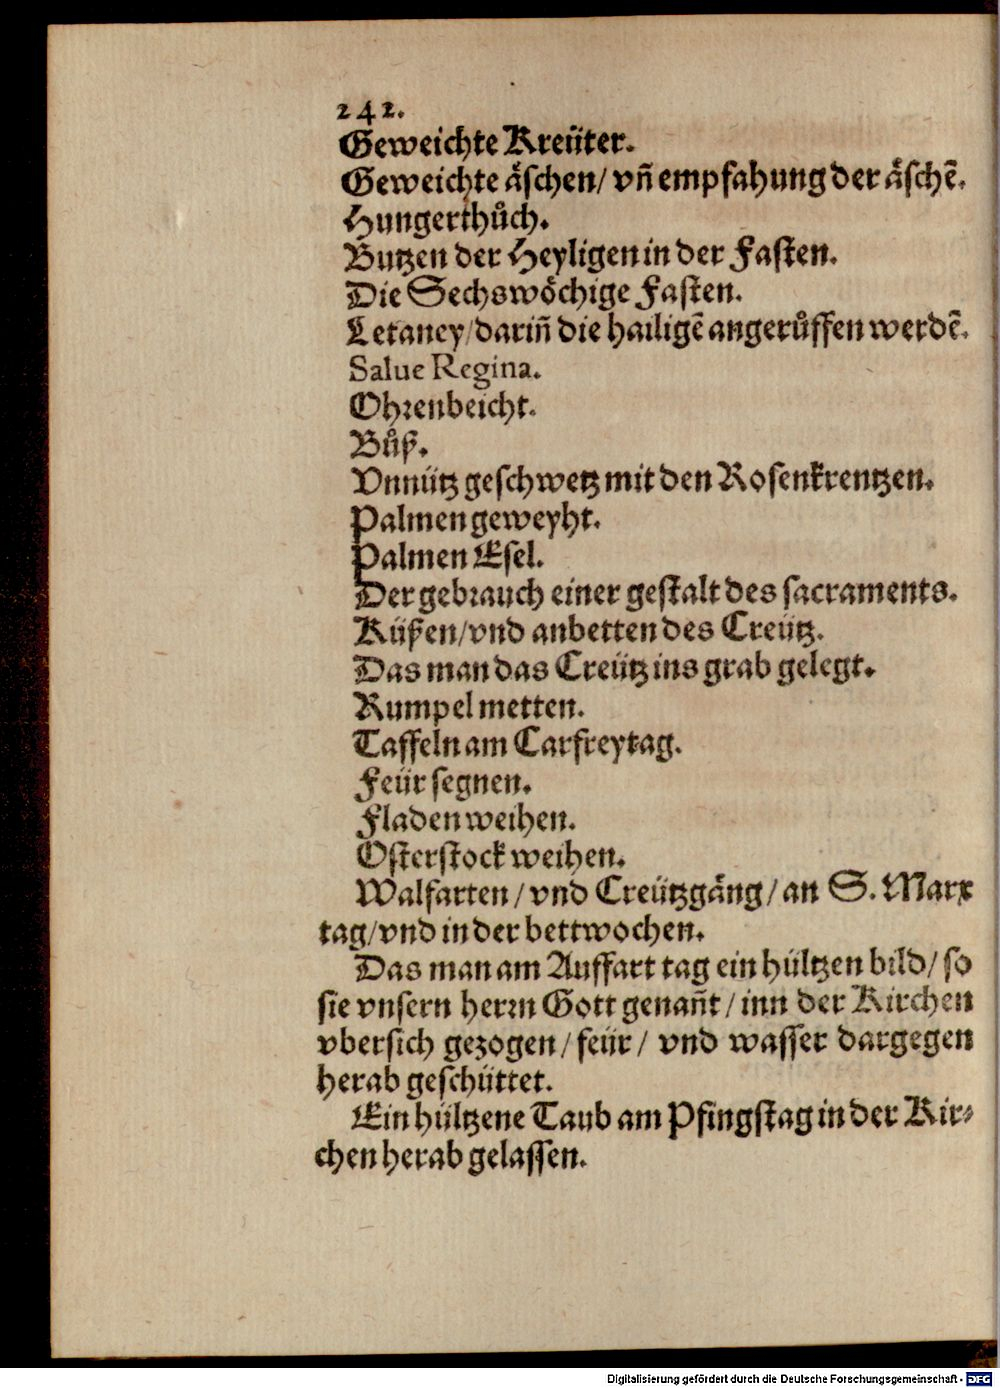 242.
Geweichte Kreüter.
Geweichte äſchen/ vñ empfahung der äſchẽ.
Hungerthůch.
Butzen der Heyligen in der Faſten.
Die Sechswöchige Faſten.
Letaney/ dariñ die hailigẽ angerůffen werdẽ.
Salue Regina.
Ohrenbeicht.
Bůß.
Vnnütz geſchwetz mit den Roſenkrentzen.
Palmen geweyht.
Palmen Eſel.
Der gebrauch einer geſtalt des ſacraments.
Küßen/ vnd anbetten des Creütz.
Das man das Creütz ins grab gelegt.
Rumpel metten.
Taffeln am Carfreytag.
Feür ſegnen.
Fladen weihen.
Oſterſtock weihen.
Walfarten/ vnd Creützgäng/ an S. Marx
tag/ vnd in der bettwochen.
Das man am Auffart tag ein hültzen bild/ ſo
ſie vnſern herrn Gott genañt/ inn der Kirchen
vberſich gezogen/ feür/ vnd waſſer dargegen
herab geſchüttet.
Ein hültzene Taub am Pfingſtag in der Kir⸗
chen herab gelaſſen.
Digitalisierung gefördert durch die Deutsche Forschungsgemeinschaft - DFG